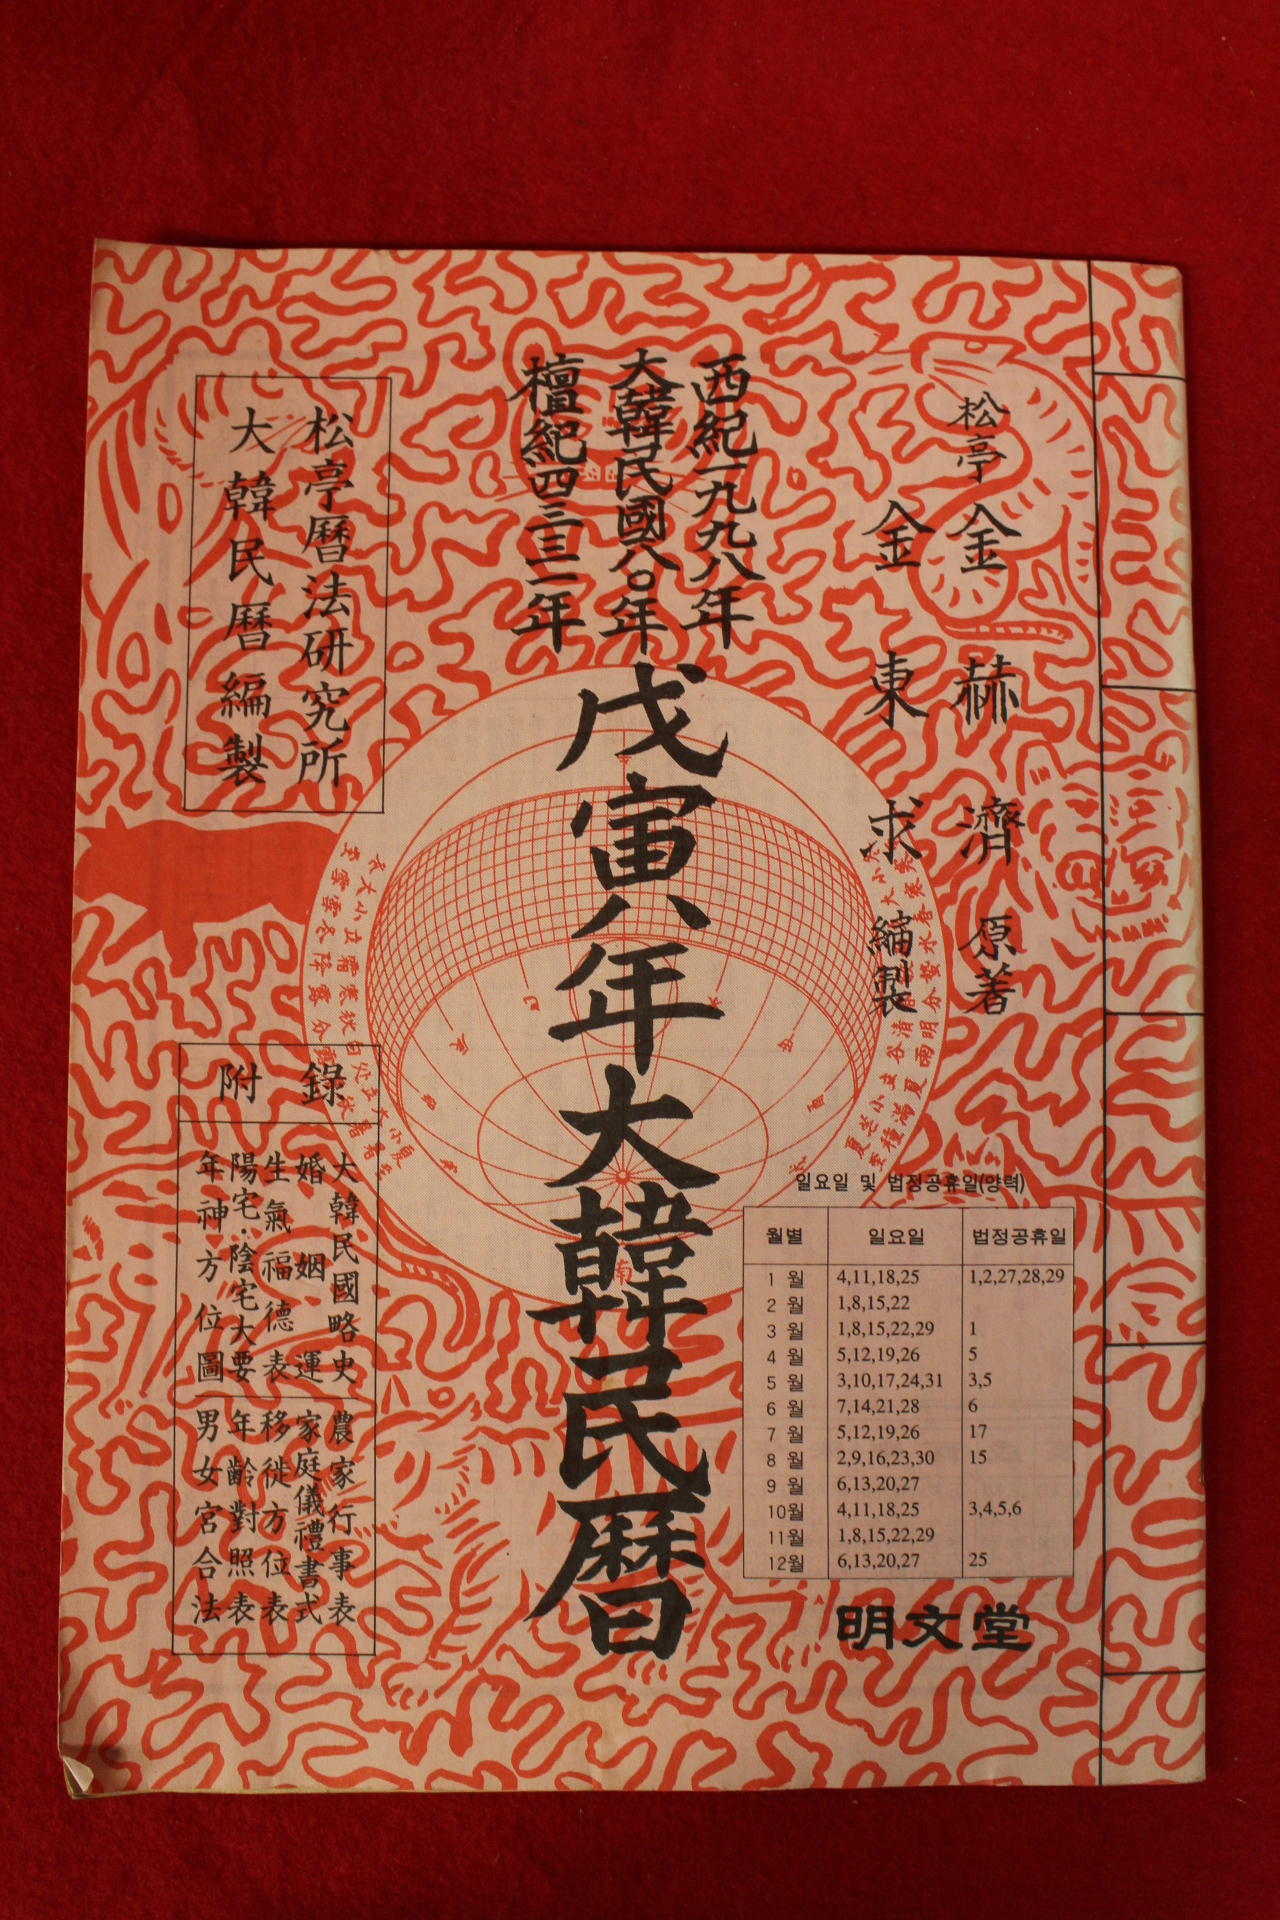 松亭 金赫濟 原著
金東求 編製
西紀一九九八年
大韓民國八〇年
檀紀四三三一年
戊寅年大韓民曆
松亭曆法硏究所
大韓民曆編製
附錄
大韓民國略史
婚姻運
生氣福德表
陽宅·陰宅大要
年神方位圖
農家行事表
家庭儀禮書式
移徙方位表
年齡對照表
男女宮合法
일요일 및 법정공휴일(양력)
월별 일요일 법정공휴일
1월 4,11,18,25 1,2,27,28,29
2월 1,8,15,22
3월 1,8,15,22,29 1
4월 5,12,19,26 5
5월 3,10,17,24,31 3,5
6월 7,14,21,28 6
7월 5,12,19,26 17
8월 2,9,16,23,30 15
9월 6,13,20,27
10월 4,11,18,25 3,4,5,6
11월 1,8,15,22,29
12월 6,13,20,27 25
明文堂
南